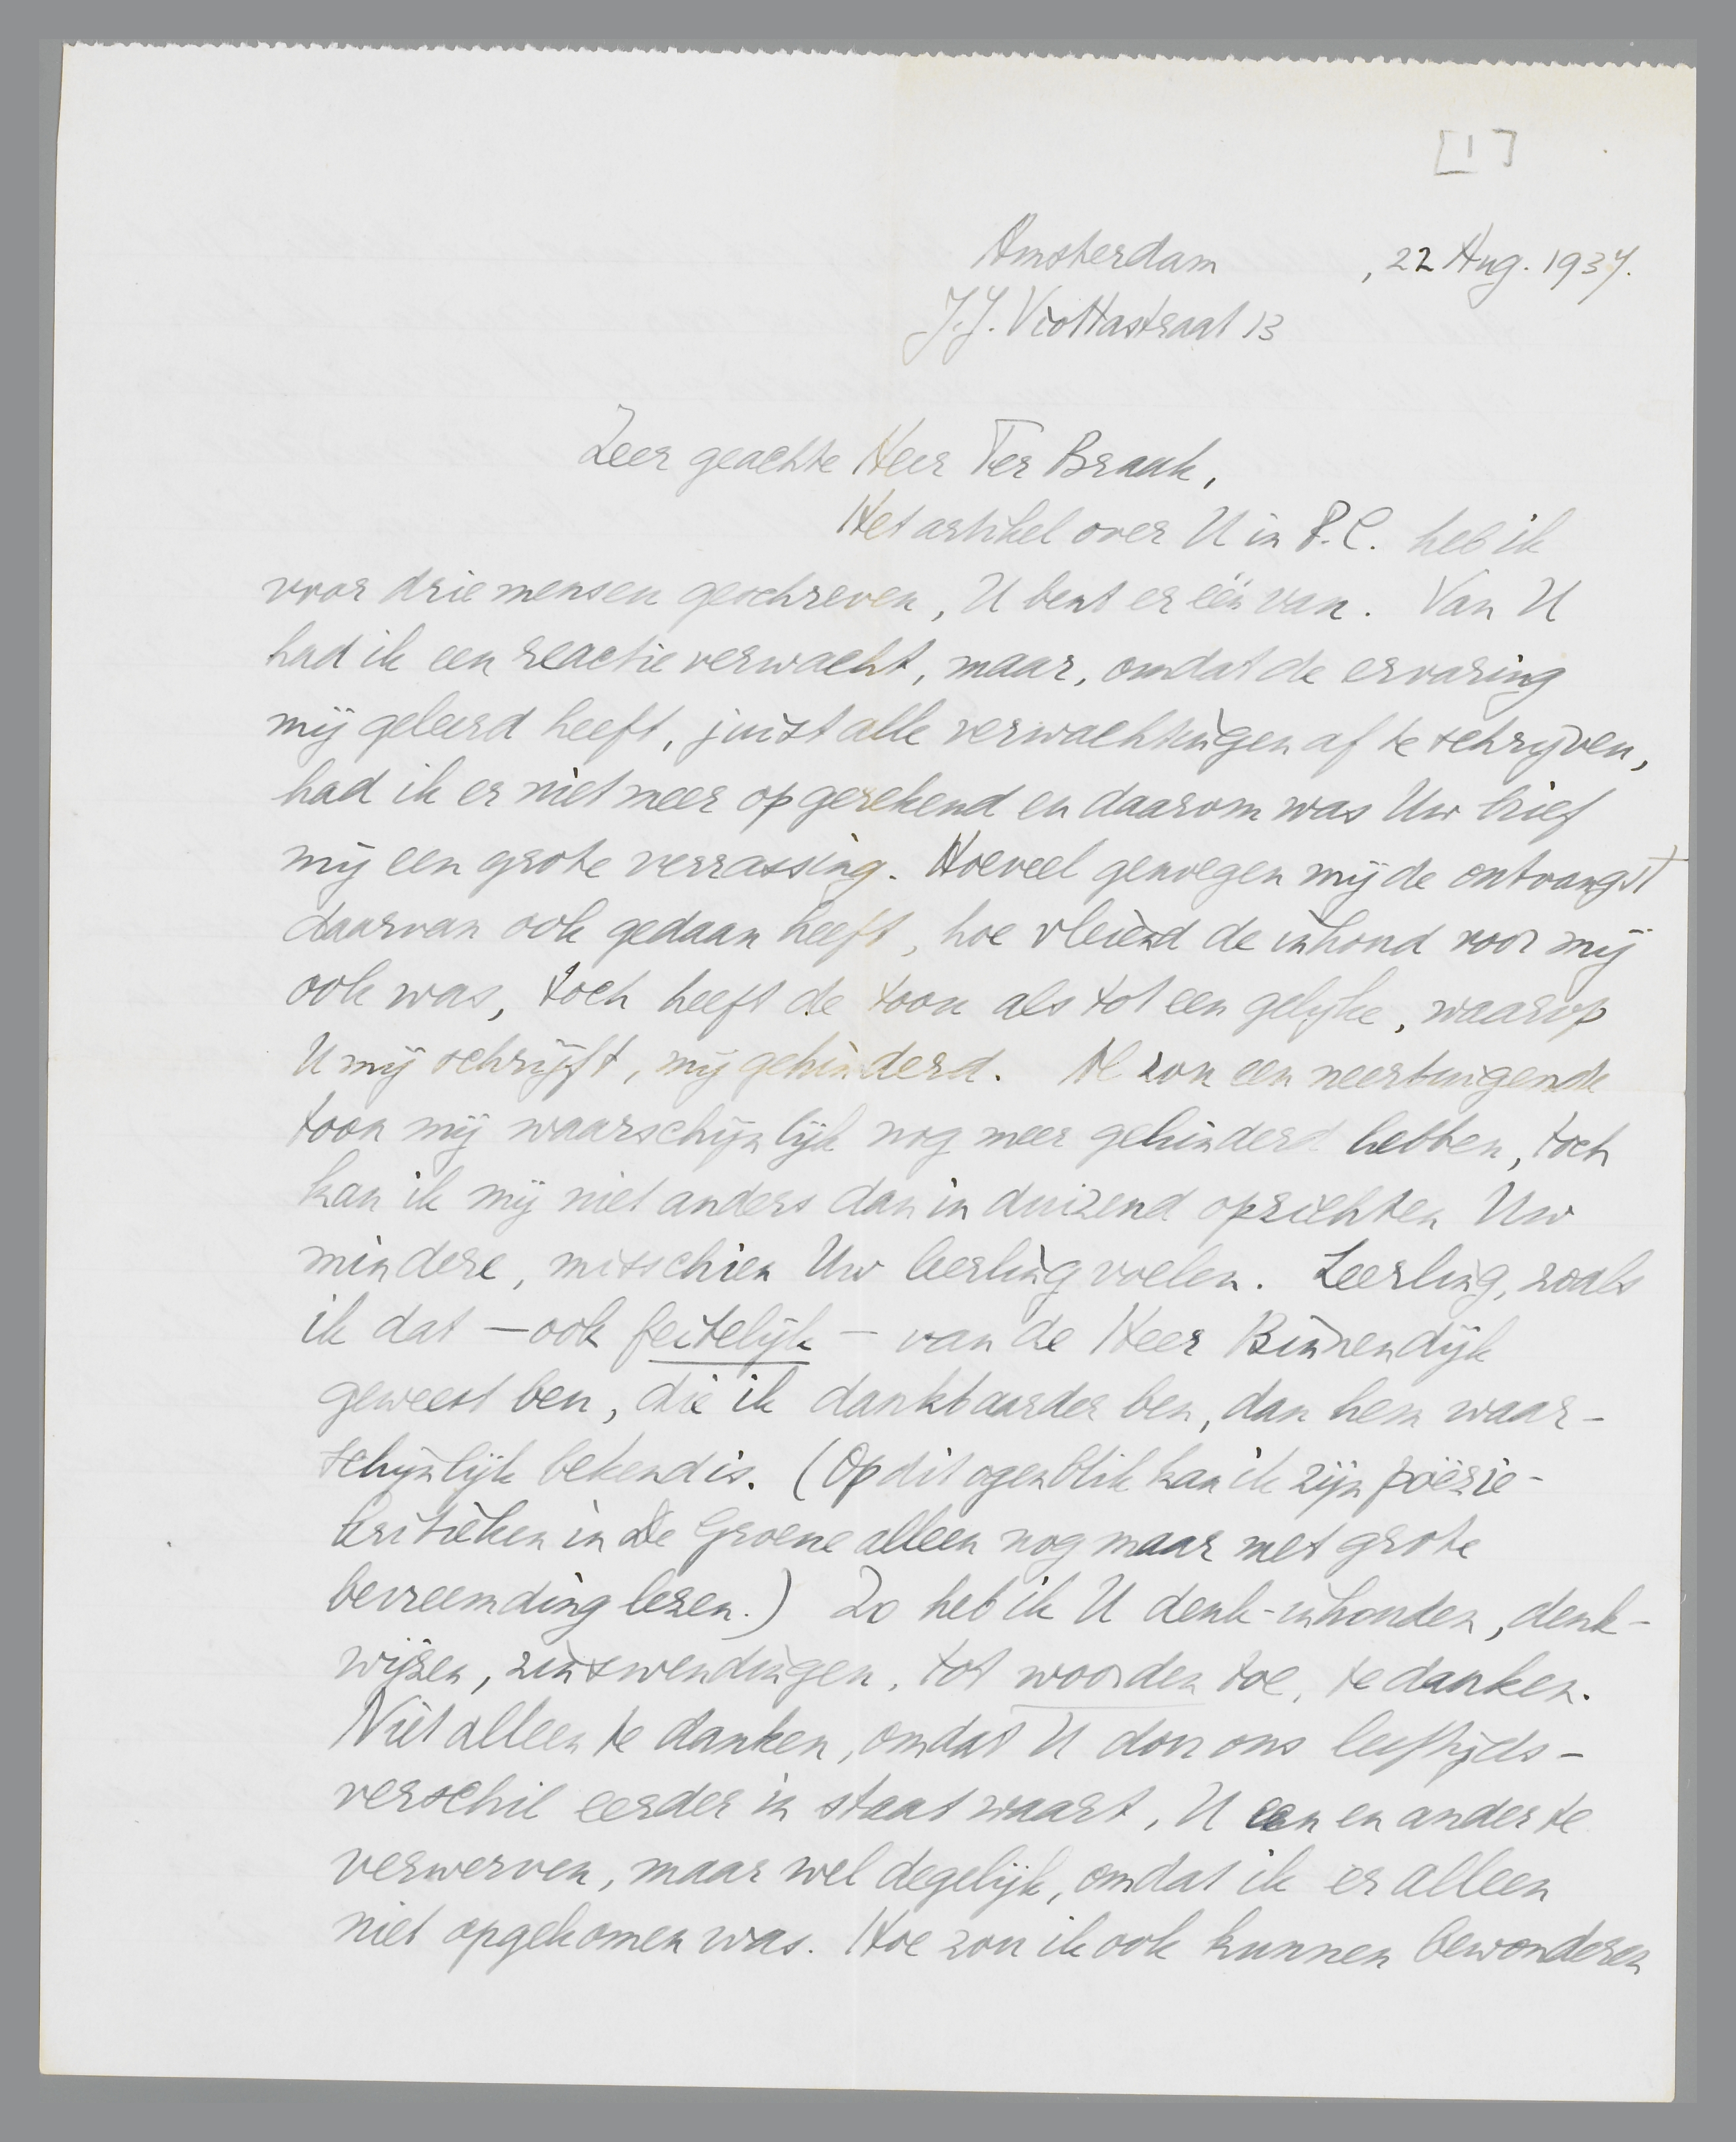 [1]
Amsterdam , 22 Aug. 1937.
J.J. Viottastraat 13
Zeer geachte Heer Ter Braak,
Het artikel over U in P.C. heb ik
voor drie mensen geschreven, U bent er één van. Van U
had ik een reactie verwacht, maar, omdat de ervaring
mij geleerd heeft, juist alle verwachtingen af te schrijven,
had ik er niet meer op gerekend en daarom was Uw brief
mij een grote verrassing. Hoeveel genoegen mij de ontvangst
daarvan ook gedaan heeft, hoe vleiend de inhoud voor mij
ook was, toch heeft de toon als tot een gelijke, waarop
U mij schrijft, mij gehinderd. Al zou een neerbuigende
toon mij waarschijnlijk nog meer gehinderd hebben, toch
kan ik mij niet anders dan in duizend opzichten Uw
mindere, misschien Uw leerling voelen. Leerling, zoals
ik dat – ook feitelijk – van de Heer Binnendijk
geweest ben, die ik dankbaarder ben, dan hem waar-
schijnlijk bekend is. (Op dit ogenblik kan ik zijn poëzie-
kritieken in De Groene alleen nog maar met grote
bevreemding lezen.) Zo heb ik U denk-inhouden, denk-
wijzen, zinswendingen, tot woorden toe, te danken.
Niet alleen te danken, omdat U door ons leeftijds-
verschil eerder in staat waart, U een en ander te
verwerven, maar wel degelijk, omdat ik er alleen
niet opgekomen was. Hoe zou ik ook kunnen bewonderen